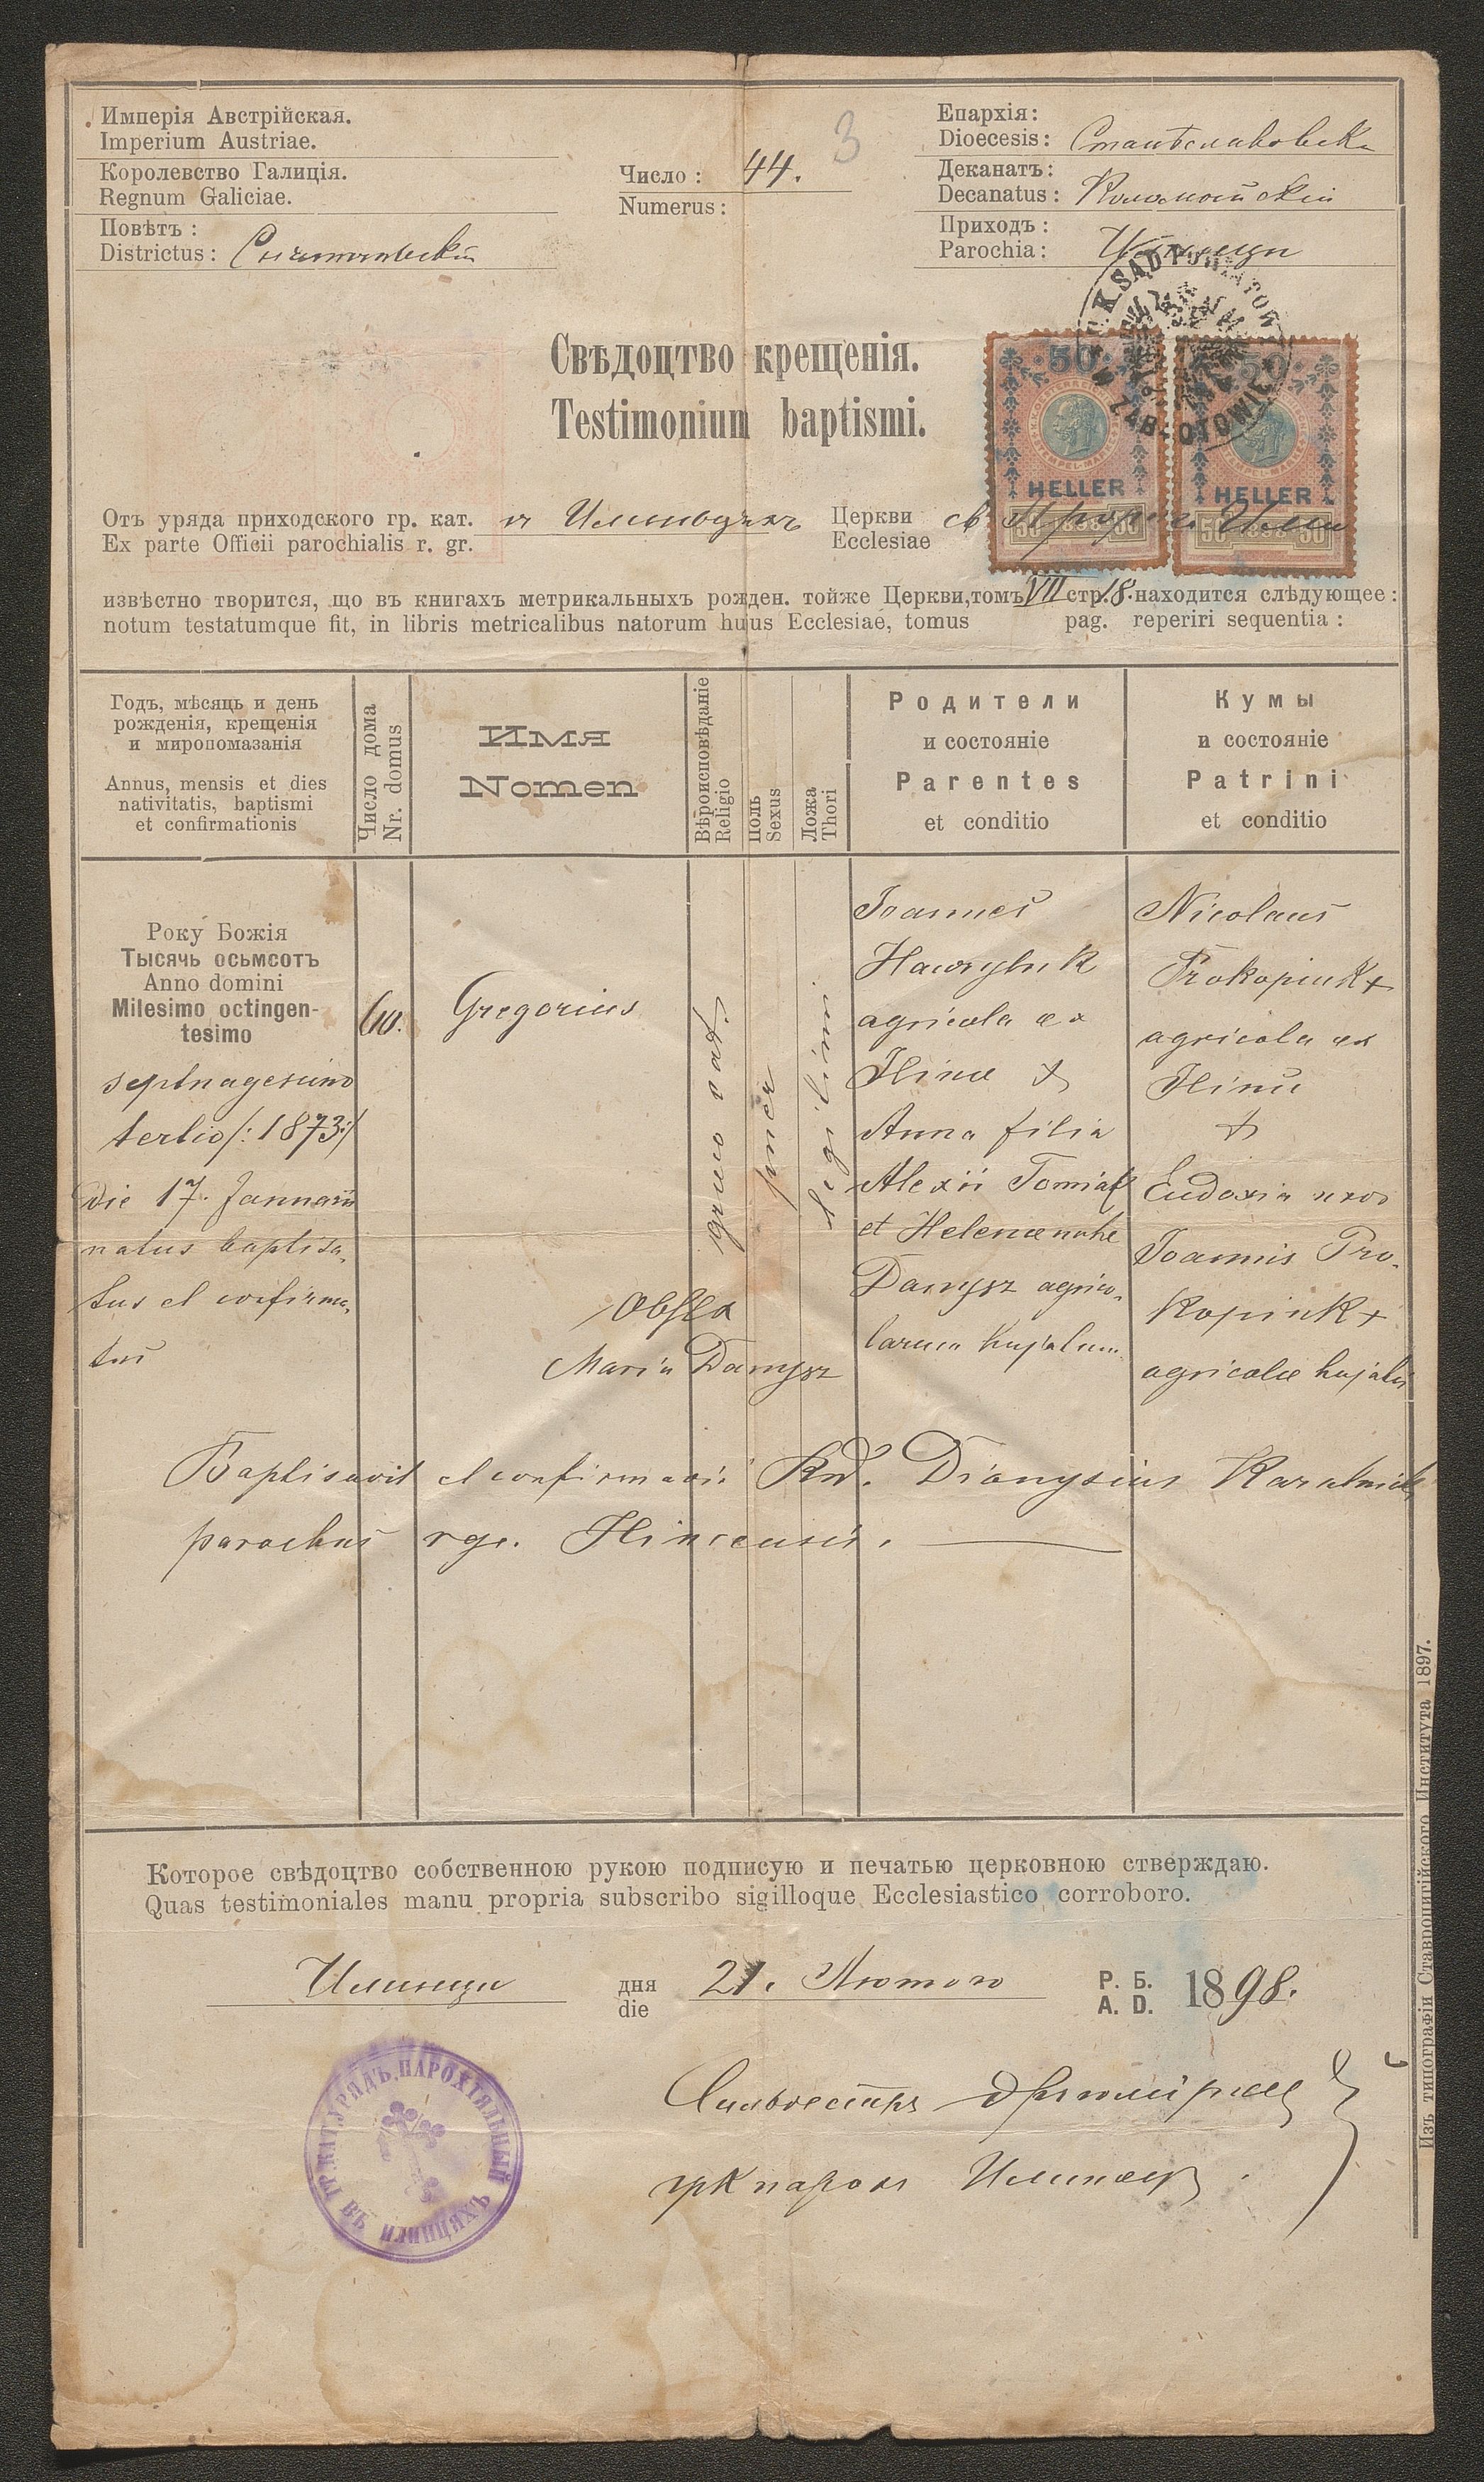 Имперія Австрійская.
Imperium Austriae.
Королевство Галиція.
Regnum Galiciae.
Повѣтъ :
Districtus :
Число : 44.
Numerus :
3
Епархія :
Dioecesis :
Деканатъ :
Decanatus : Коломыйскій
Приходъ :
Parochia :
Свѣдоцтво крещенія.
Testimonium baptismi.
50 HELLER 50 1898 50
50 HELLER 50 1898 50
Отъ уряда приходского гр. кат. Церкви св Пророка Иліи
Ex parte Officii parochialis r. gr. Ecclesiae
извѣстно творится, що въ книгахъ метрикальныхъ рожден. тойже Церкви, томъ VII стр. 18. находится слѣдующее :
notum testatumque fit, in libris metricalibus natorum hujus Ecclesiae, tomus pag. reperiri sequentia :
Годъ, мѣсяць и день
рожденія, крещенія
и миропомазанія
Annus, mensis et dies
nativitatis, baptismi
et confirmationis
Число дома
Nr. domus
Имя
Nomen
Вѣроисповѣданіе
Religio
Полъ
Sexus
Ложа
Thori
Родители
и состояніе
Parentes
et conditio
Кумы
и состояніе
Patrini
et conditio
Року Божія
Тысячь осьмсотъ
Anno domini
Milesimo octingen-
tesimo
septuagesimo
tertio /: 1873 :/
die 17. Januarii
natus baptisa-
tus et confirma-
tus
60.
Gregorius
Obstx
Maria Danysz
graeco cat.
puer
legitimi
Joannes
Hawryluk
agricola ex
Ilince &
Anna filia
Alexii Tomiak
et Helenae natae
Danysz agrico-
larum hujatum
Nicolaus
Prokopiuk +
agricola ex
Ilince
&
Eudoxia uxor
Joannis Pro-
kopiuk +
agricolae hujatis
Baptisavit et confirmavit Rnd. Dionysius
parochus rgc. Ilincensis.
Которое свѣдоцтво собственною рукою подписую и печатью церковною стверждаю.
Quas testimoniales manu propria subscribo sigilloque Ecclesiastico corroboro.
Илинци дня 21. Лютого Р. Б. 1898.
die A. D.
Сильвестръ
грк парох
ГР. КАТ. УРЯДЪ ПАРОХІЯЛЬНЫЙ ВЪ ИЛИНЦЯХЪ
Изъ типографіи Ставропигійского Института 1897.